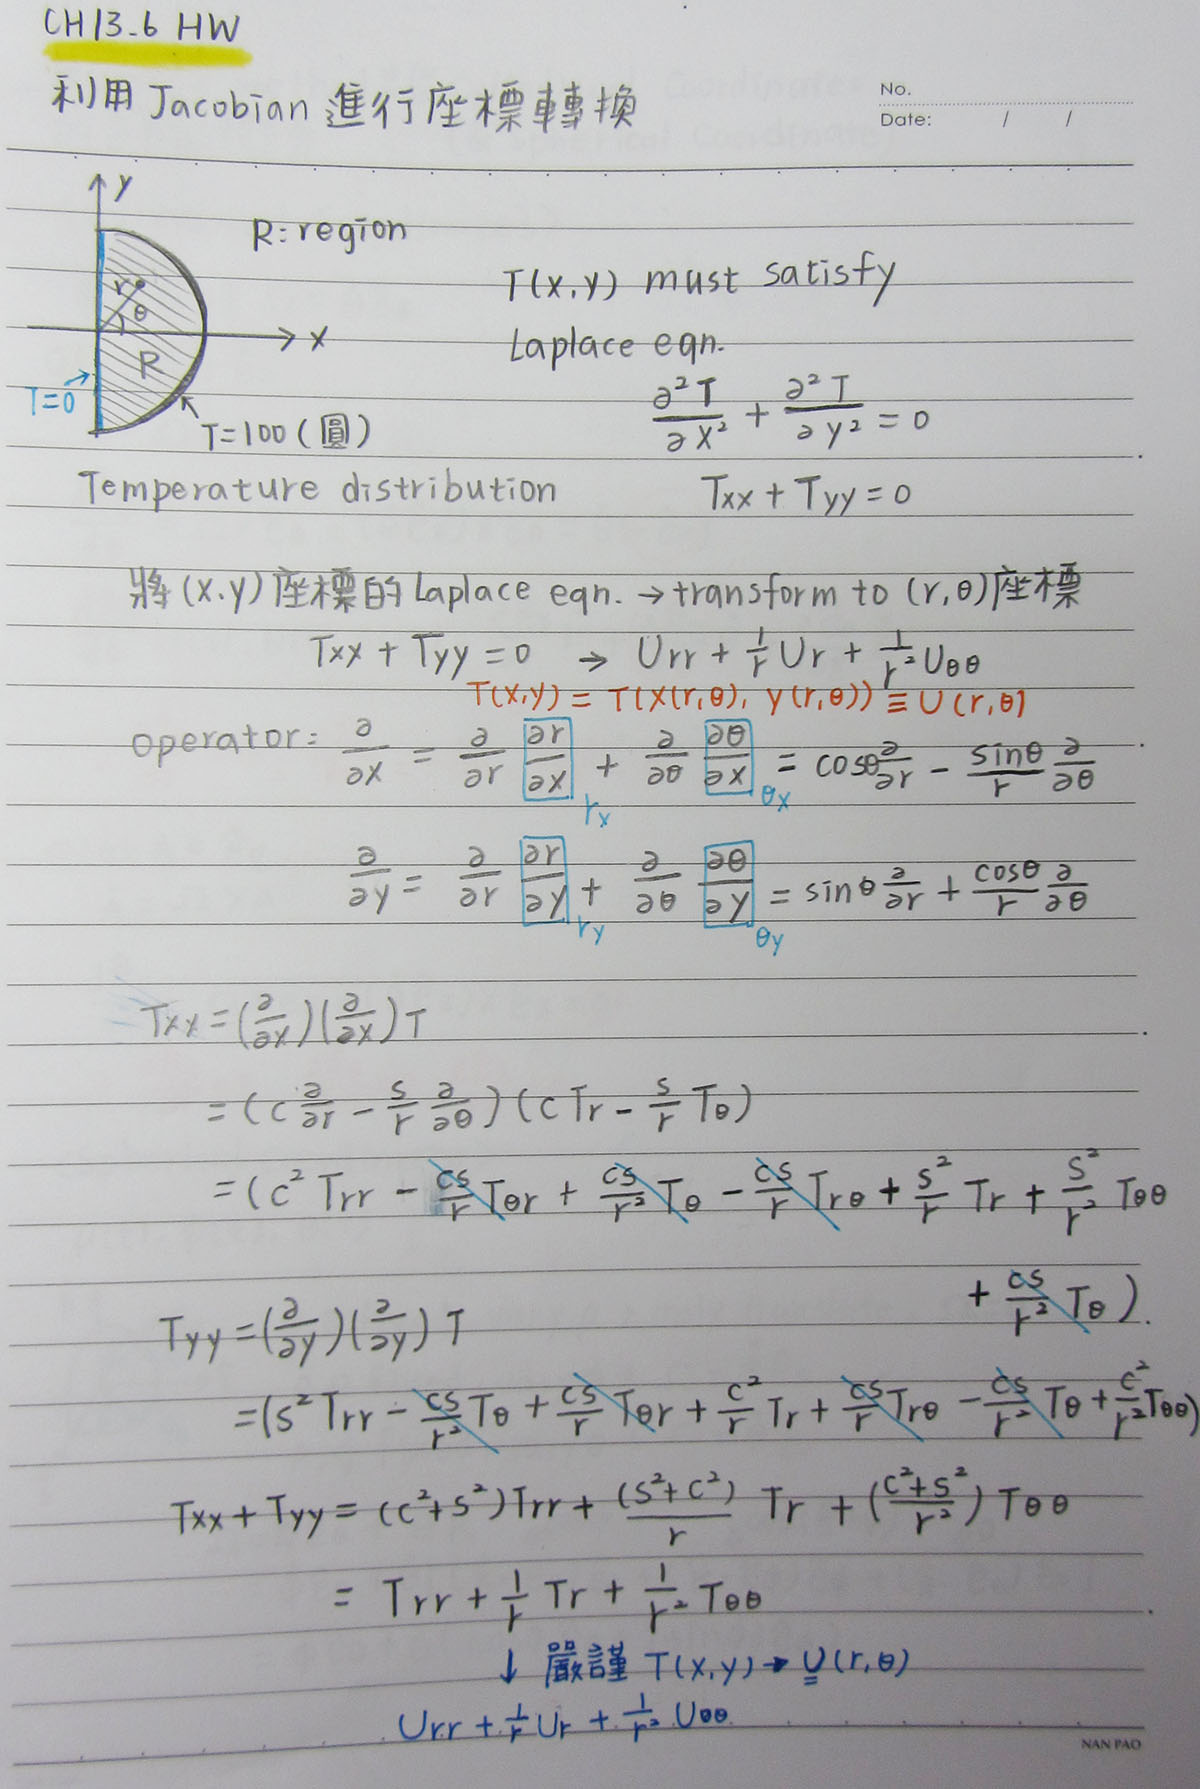 CH13.6 HW
利用 Jacobian 進行座標轉換
No.
Date: / /
y
R: region
T(x,y) must satisfy
r
θ
x
Laplace eqn.
R
T=0
∂²T/∂x² + ∂²T/∂y² = 0
T=100 (圓)
Temperature distribution
Txx + Tyy = 0
將 (x.y) 座標的 Laplace eqn. → transform to (r,θ) 座標
Txx + Tyy = 0 → Urr + 1/r Ur + 1/r² Uθθ
T(x,y) = T(x(r,θ), y(r,θ)) ≡ U(r,θ)
operator: ∂/∂x = ∂/∂r ∂r/∂x + ∂/∂θ ∂θ/∂x = cosθ ∂/∂r - sinθ/r ∂/∂θ
rx θx
∂/∂y = ∂/∂r ∂r/∂y + ∂/∂θ ∂θ/∂y = sinθ ∂/∂r + cosθ/r ∂/∂θ
ry θy
Txx = (∂/∂x)(∂/∂x) T
= (c ∂/∂r - s/r ∂/∂θ)(c Tr - s/r Tθ)
= (c² Trr - cs/r Tθr + cs/r² Tθ - cs/r Trθ + s²/r Tr + s²/r² Tθθ
+ cs/r² Tθ).
Tyy = (∂/∂y)(∂/∂y) T
= (s² Trr - cs/r² Tθ + cs/r Tθr + c²/r Tr + cs/r Trθ - cs/r² Tθ + c²/r² Tθθ)
Txx + Tyy = (c²+s²) Trr + (s²+c²)/r Tr + (c²+s²/r²) Tθθ
= Trr + 1/r Tr + 1/r² Tθθ
↓ 嚴謹 T(x,y) → U(r,θ)
Urr + 1/r Ur + 1/r² Uθθ
NAN PAO